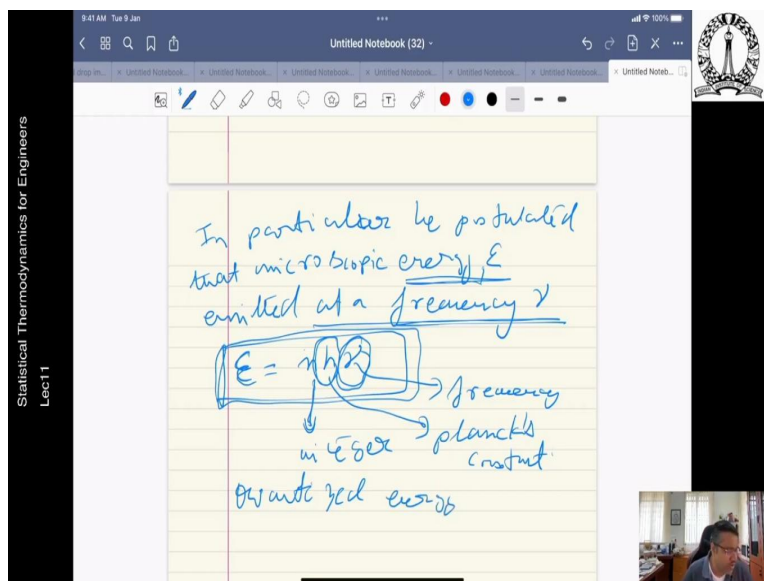 9:41 AM Tue 9 Jan
100%
Untitled Notebook (32)
drop im... × Untitled Notebook... × Untitled Notebook... × Untitled Notebook... × Untitled Notebook... × Untitled Notebook... × Untitled Notebook... × Untitled Noteb...
Statistical Thermodynamics for Engineers
Lec11
In particular he postulated
that microscopic energy, ε
emitted at a frequency ν
ε = n h ν
frequency
planck's
integer constant.
Quantized energy